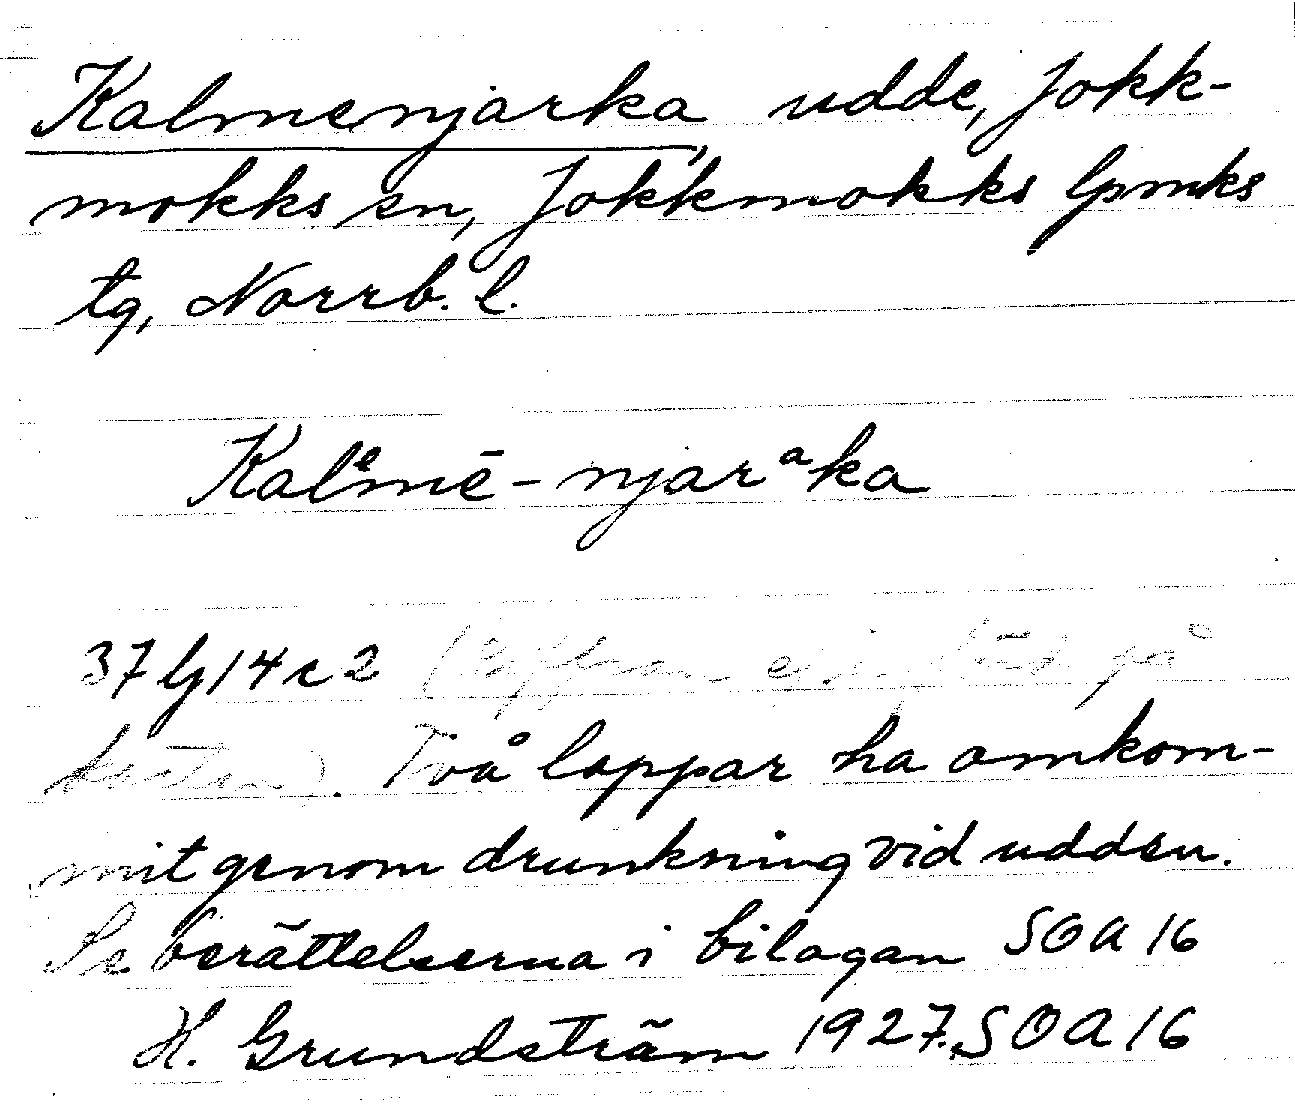 Kalmenjarka, udde, Jokk-
mokks sn, Jokkmokks lpmks
tg, Norrb. l.
Kalᵉmē-njarᵃka
37 G 14 c 2 (Siffran ej utsatt på
kartan). Två lappar ha omkom-
mit genom drunkning vid udden.
Se berättelserna i bilagan SOA 16
H. Grundström 1927. SOA 16